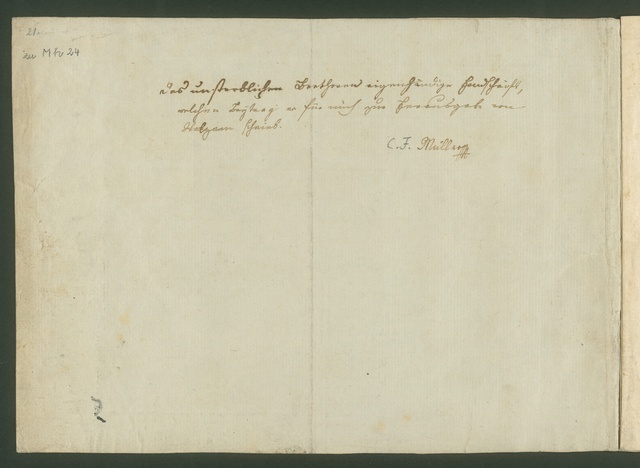 21
zu Mh 24
Des unsterblichen Beethoven eigenhändige Handschrift,
welchen Beytrag er für mich zur Herausgabe von
schrieb.
C. F. Müller